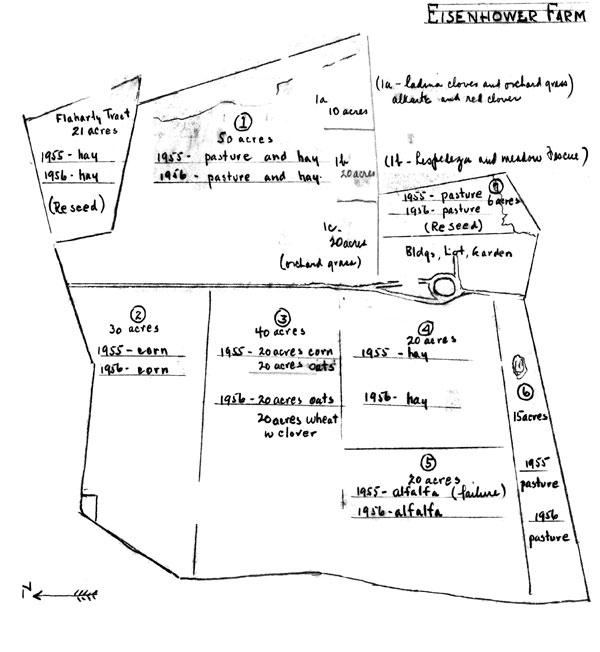 EISENHOWER FARM
Flaharty Tract
21 acres
1955 - hay
1956 - hay
(Reseed)
1
50 acres
1955 - pasture and hay
1956 - pasture and hay
1a
10 acres
1b
20 acres
1c -
20 acres
(orchard grass)
(1a - ladina clover and orchard grass)
alsike and red clover
(1b - Lespedeza and meadow fescue)
7
1955 - pasture
6 acres
1956 - pasture
(Reseed)
Bldgs, Lot, Garden
2
30 acres
1955 - corn
1956 - corn
3
40 acres
1955 - 20 acres corn
20 acres oats
1956 - 20 acres oats
20 acres wheat
w clover
4
20 acres
1955 - hay
1956 - hay
5
20 acres
1955 - alfalfa (failure)
1956 - alfalfa
6
15 acres
1955
pasture
1956
pasture
N